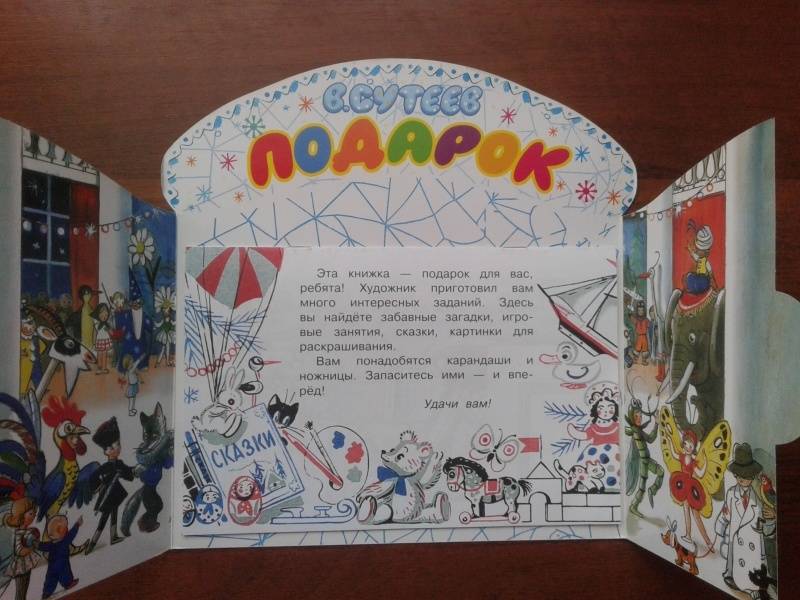 В.СУТЕЕВ
ПОДАРОК
Эта книжка — подарок для вас,
ребята! Художник приготовил вам
много интересных заданий. Здесь
вы найдёте забавные загадки, игро-
вые занятия, сказки, картинки для
раскрашивания.
Вам понадобятся карандаши и
ножницы. Запаситесь ими — и впе-
рёд!
Удачи вам!
СКАЗКИ